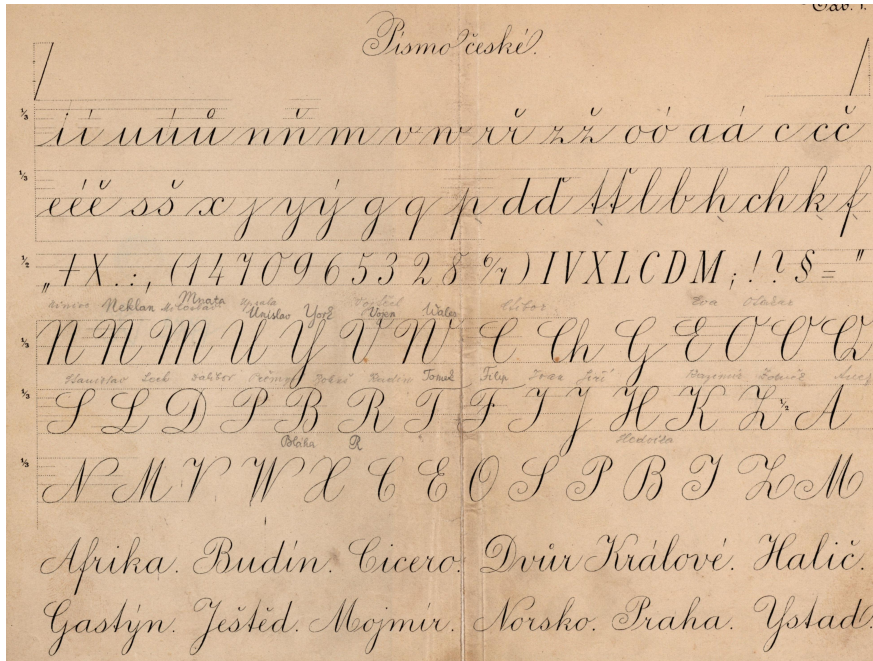 Tab. 1.
Písmo české.
i í u ú ů n ň m v w r ř z ž o ó a á c č
e é ě s š x j y ý g q p d ď t ť l b h ch k f
„ + X . : , ( 1 4 7 0 9 6 5 3 2 8 % ) I V X L C D M ; ! ? § = "
Neklan Mnata Miloslav Unislav Yorž Vojen Wales Ctibor Eva Otakar
N N M U Y V W C Ch G E O O Q
Stanislav Lech Dalibor Tomáš Filip Jiří
S L D P B R T F I J H K Z A
Blažka R Hedvika
N M V W X C E O S P B I Z M
Afrika. Budín. Cicero. Dvůr Králové. Halič.
Gastýn. Ještěd. Mojmír. Norsko. Praha. Ystad.